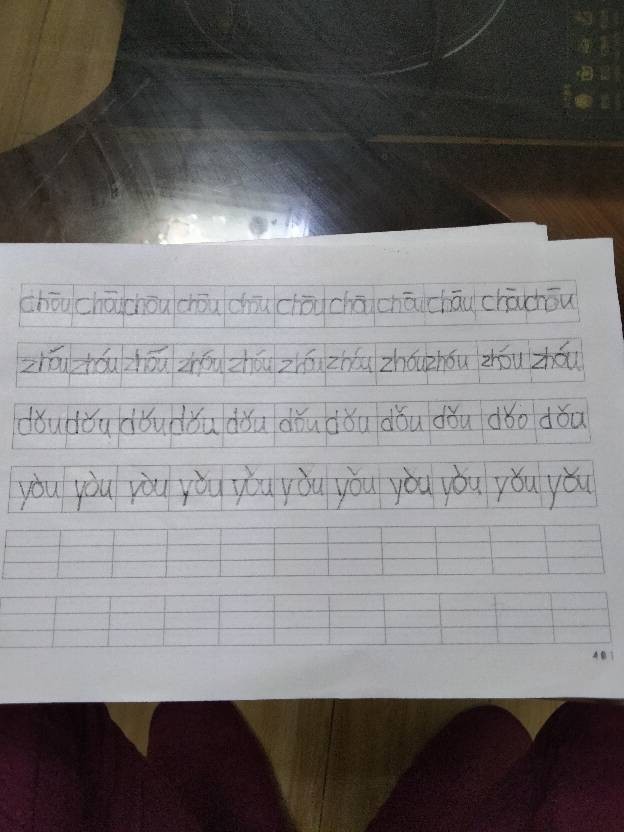 chōu chōu chōu chōu chōu chōu chōu chōu chāu chōu chōu
zhóu zhóu zhōu zhóu zhóu zhóu zhóu zhóu zhóu zhóu zhóu
dǒu dǒu dǒu dǒu dǒu dǒu dǒu dǒu dǒu dǒo dǒu
yòu yòu yòu yǒu yǒu yòu yǒu yòu yǒu yǒu yǒu